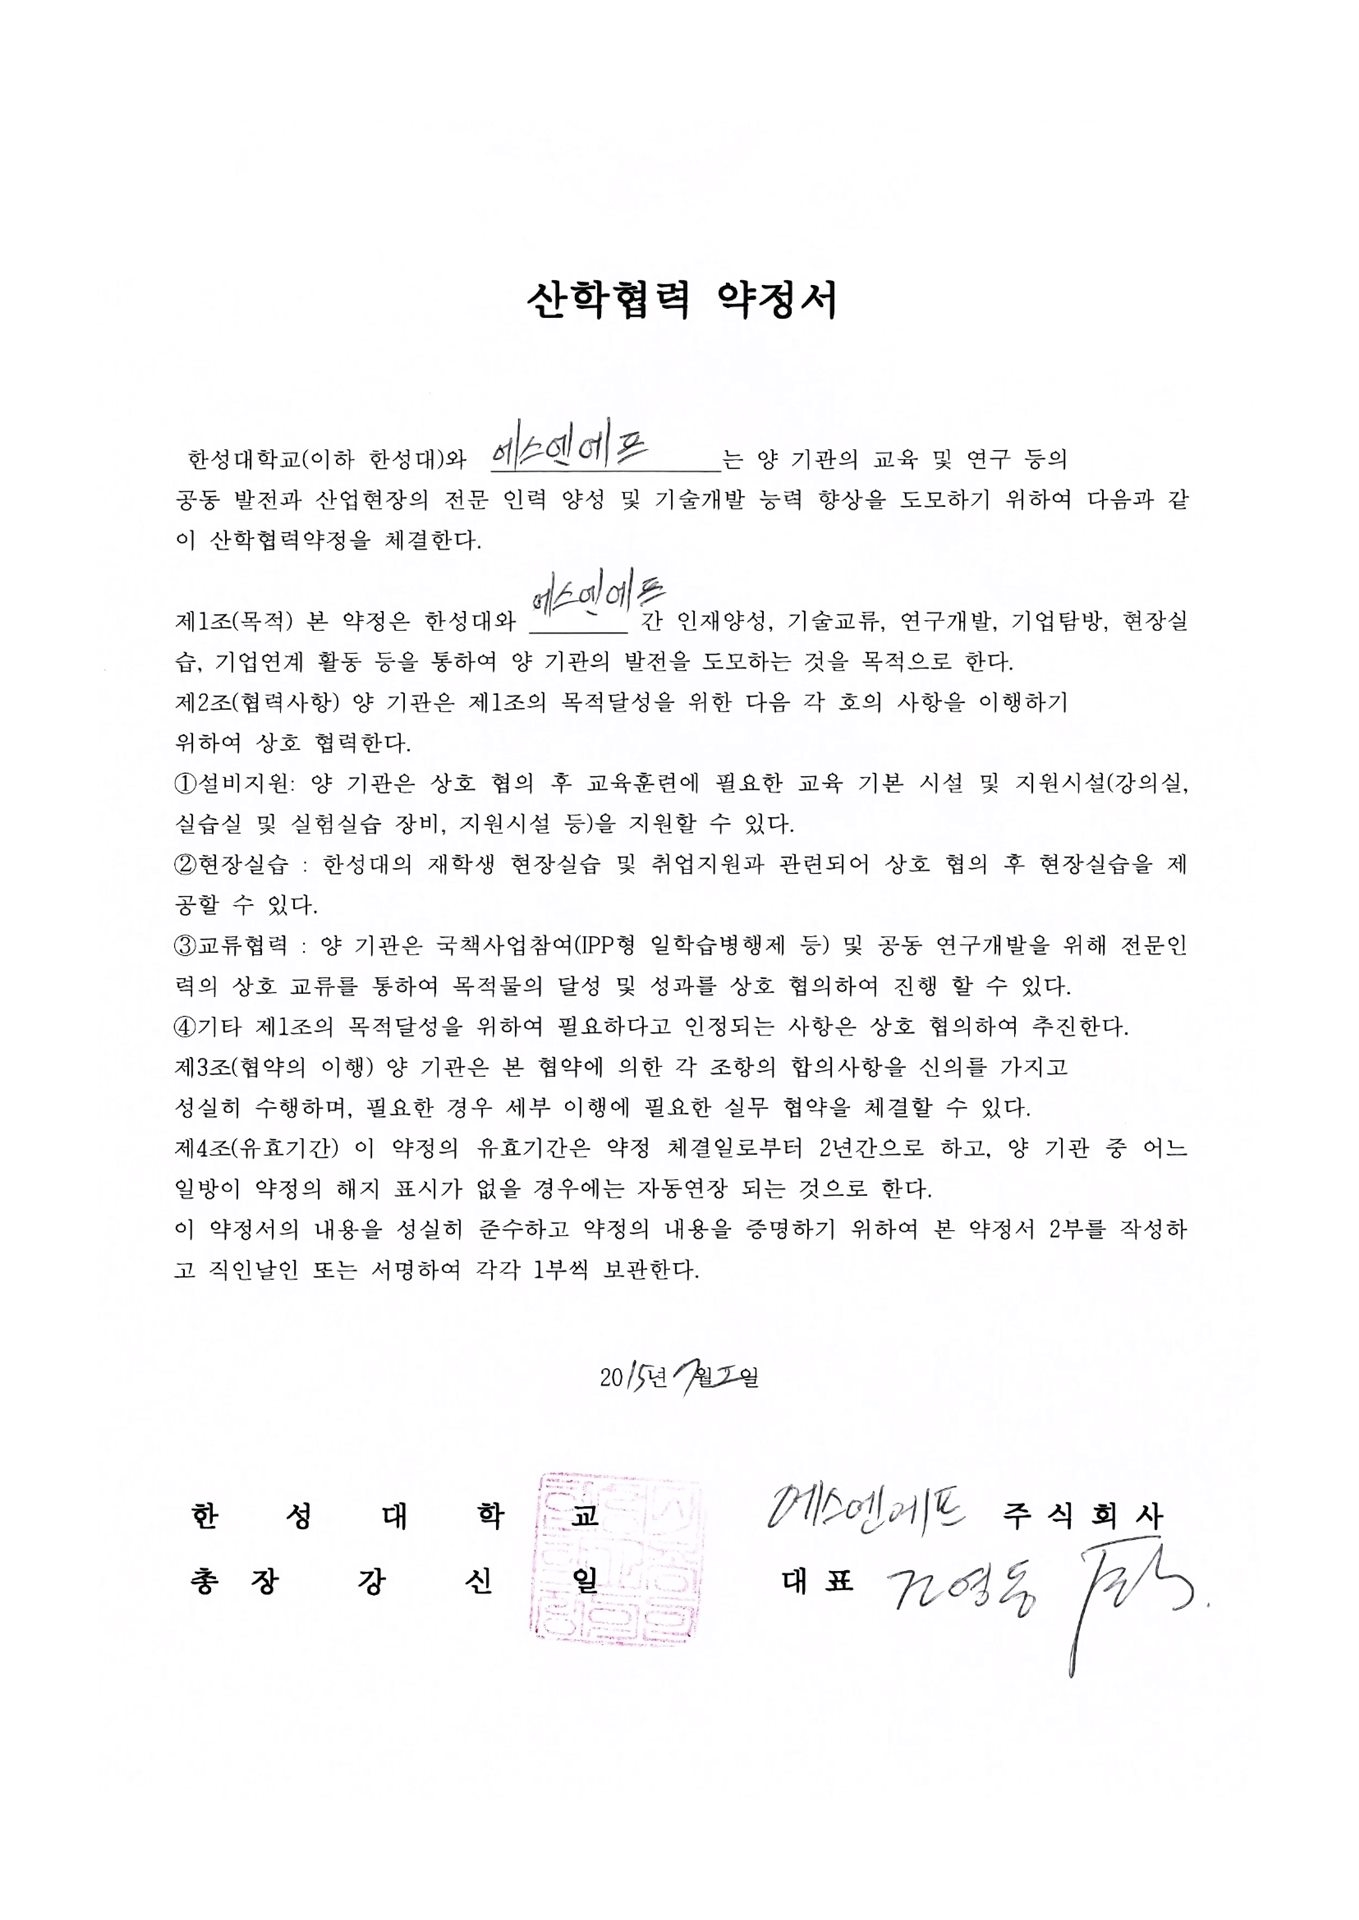 산학협력 약정서
한성대학교(이하 한성대)와 에스엔에프 는 양 기관의 교육 및 연구 등의
공동 발전과 산업현장의 전문 인력 양성 및 기술개발 능력 향상을 도모하기 위하여 다음과 같
이 산학협력약정을 체결한다.
제1조(목적) 본 약정은 한성대와 에스엔에프 간 인재양성, 기술교류, 연구개발, 기업탐방, 현장실
습, 기업연계 활동 등을 통하여 양 기관의 발전을 도모하는 것을 목적으로 한다.
제2조(협력사항) 양 기관은 제1조의 목적달성을 위한 다음 각 호의 사항을 이행하기
위하여 상호 협력한다.
①설비지원: 양 기관은 상호 협의 후 교육훈련에 필요한 교육 기본 시설 및 지원시설(강의실,
실습실 및 실험실습 장비, 지원시설 등)을 지원할 수 있다.
②현장실습 : 한성대의 재학생 현장실습 및 취업지원과 관련되어 상호 협의 후 현장실습을 제
공할 수 있다.
③교류협력 : 양 기관은 국책사업참여(IPP형 일학습병행제 등) 및 공동 연구개발을 위해 전문인
력의 상호 교류를 통하여 목적물의 달성 및 성과를 상호 협의하여 진행 할 수 있다.
④기타 제1조의 목적달성을 위하여 필요하다고 인정되는 사항은 상호 협의하여 추진한다.
제3조(협약의 이행) 양 기관은 본 협약에 의한 각 조항의 합의사항을 신의를 가지고
성실히 수행하며, 필요한 경우 세부 이행에 필요한 실무 협약을 체결할 수 있다.
제4조(유효기간) 이 약정의 유효기간은 약정 체결일로부터 2년간으로 하고, 양 기관 중 어느
일방이 약정의 해지 표시가 없을 경우에는 자동연장 되는 것으로 한다.
이 약정서의 내용을 성실히 준수하고 약정의 내용을 증명하기 위하여 본 약정서 2부를 작성하
고 직인날인 또는 서명하여 각각 1부씩 보관한다.
2015년 7월 일
한 성 대 학 교 에스엔에프 주 식 회 사
총 장 강 신 일 대 표 김영동